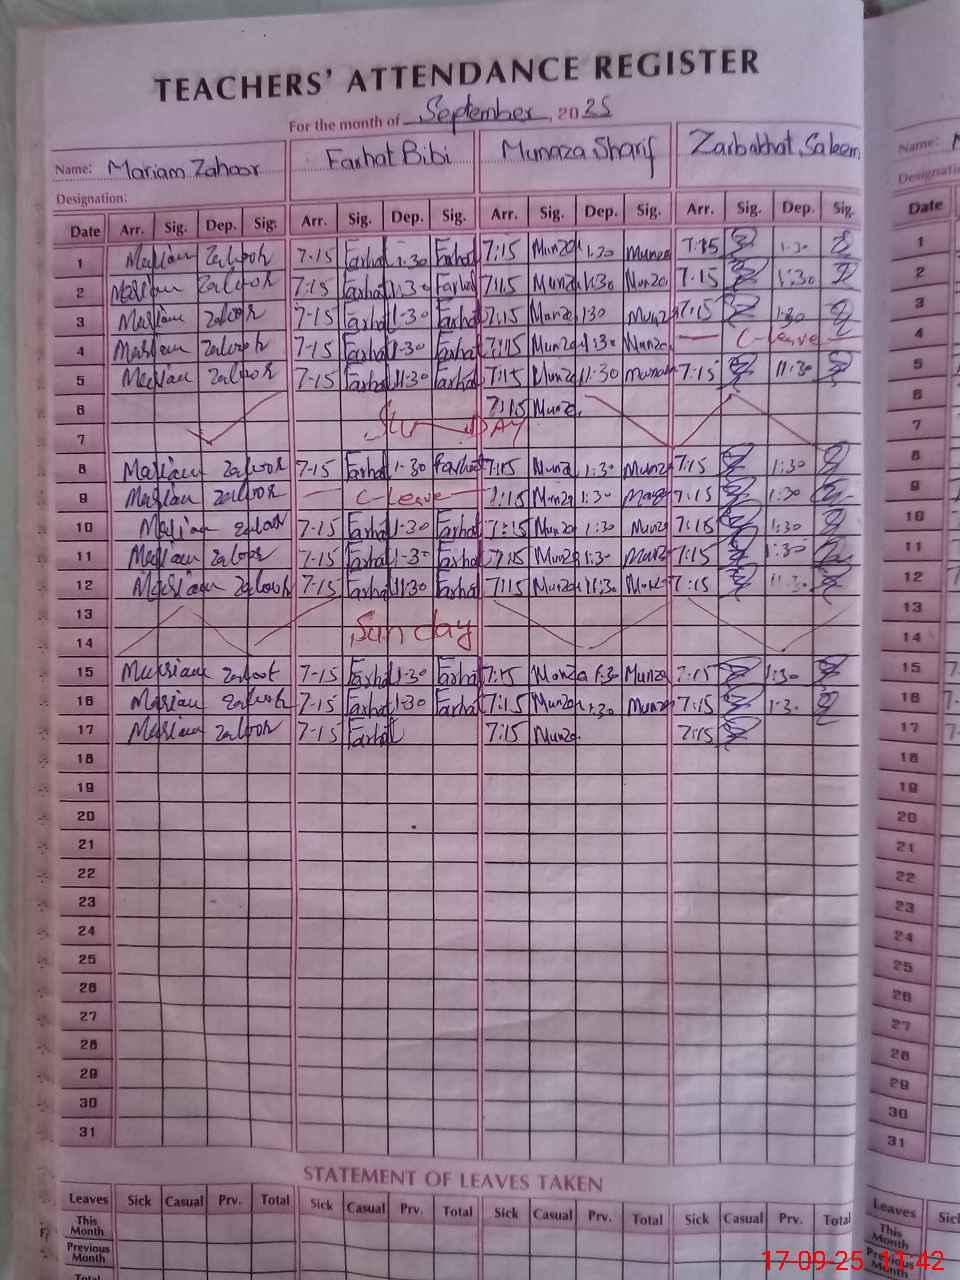 TEACHERS' ATTENDANCE REGISTER
For the month of September, 2025
Name: Mariam Zahoor Farhat Bibi Munaza Sharif Zarbakhat Saleem Name:
Designation:
Date Arr. Sig. Dep. Sig. Arr. Sig. Dep. Sig. Arr. Sig. Dep. Sig. Arr. Sig. Dep. Sig. Date
1 Mariam Zahoor 7-15 Farhat 1:30 Farhat 7:15 Munza 1:30 Munza 7:15 1:30 1
2 Mariam Zahoor 7-15 Farhat 1:30 Farhat 7:15 Munza 1:30 Munza 7:15 1:30 2
3 Mariam Zahoor 7-15 Farhat 1-30 Farhat 7:15 Munza 1:30 Munza 7:15 1:30 3
4 Mariam Zahoor 7-15 Farhat 1-30 Farhat 7:15 Munza 1:30 Munza — C-leave — 4
5 Mariam Zahoor 7-15 Farhat 11:30 Farhat 7:15 Munza 11:30 Munza 7:15 11:30 5
6 7:15 Munza 6
7 SUNDAY 7
8 Mariam Zahoor 7-15 Farhat 1-30 Farhat 7:15 Munza 1:30 Munza 7:15 1:30 8
9 Mariam Zahoor — C-Leave — 7:15 Munza 1:30 7:15 1:30 9
10 Mariam Zahoor 7-15 Farhat 1-30 Farhat 7:15 Munza 1:30 Munza 7:15 1:30 10
11 Mariam Zahoor 7-15 Farhat 1-30 Farhat 7:15 Munza 1:30 Munza 7:15 1:30 11
12 Mariam Zahoor 7-15 Farhat 11:30 Farhat 7:15 Munza 11:30 7:15 11:30 12
13 13
14 Sunday 14
15 Mariam Zahoor 7-15 Farhat 1-30 Farhat 7:15 Munza 1:30 Munza 7:15 1:30 15
16 Mariam Zahoor 7-15 Farhat 1:30 Farhat 7:15 Munza 1:30 Munza 7:15 1:30 16
17 Mariam Zahoor 7-15 Farhat 7:15 Munza 7:15 17
18 18
19 19
20 20
21 21
22 22
23 23
24 24
25 25
26 26
27 27
28 28
29 29
30 30
31 31
STATEMENT OF LEAVES TAKEN
Leaves Sick Casual Prv. Total Sick Casual Prv. Total Sick Casual Prv. Total Sick Casual Prv. Total Leaves
This Month This Month
Previous Month
Total
17-09-25 11:42